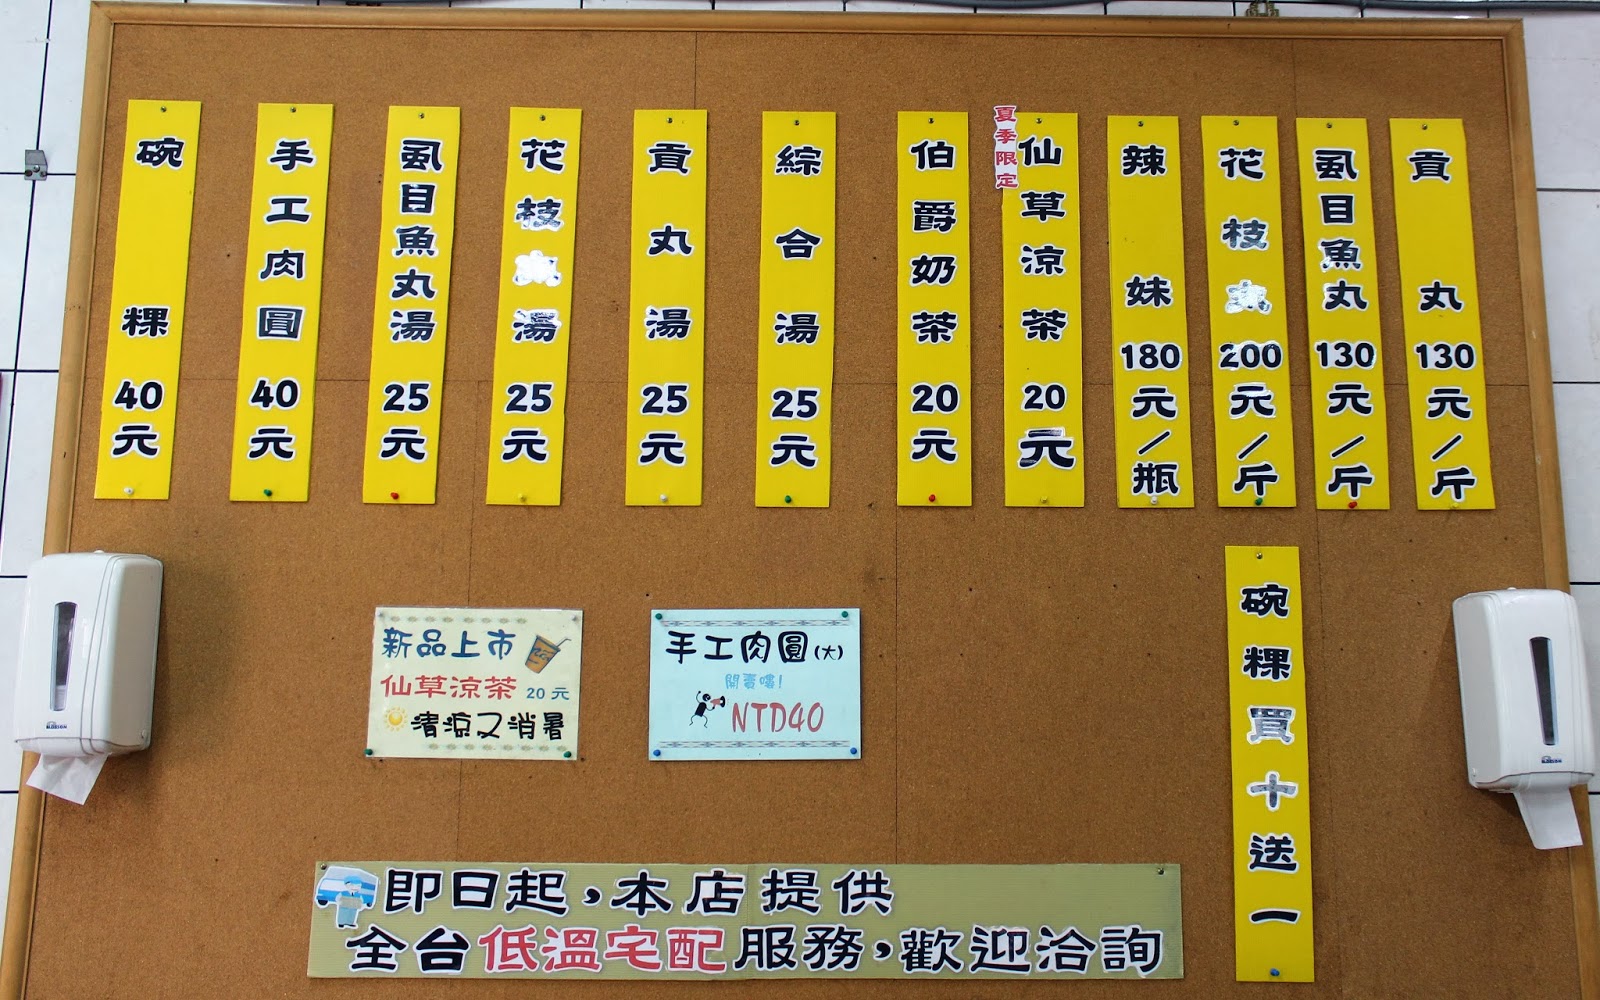 碗粿40元
手工肉圓40元
虱目魚丸湯25元
花枝丸湯25元
貢丸湯25元
綜合湯25元
伯爵奶茶20元
夏季限定
仙草涼茶20元
辣妹180元/瓶
花枝丸200元/斤
虱目魚丸130元/斤
貢丸130元/斤
碗粿買十送一
新品上市
仙草涼茶 20元
清涼又消暑
手工肉圓(大)
開賣嘍!
NTD40
即日起,本店提供
全台低溫宅配服務,歡迎洽詢